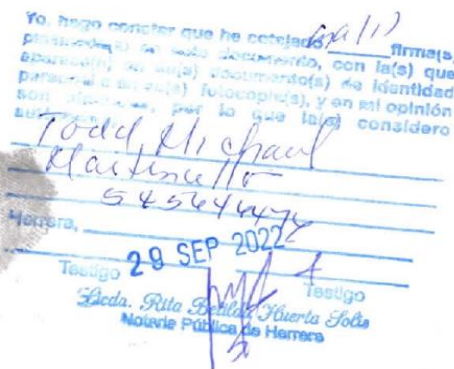 Yo, hago constar que he cotejado firma(s)
plasmada(s) en este documento, con la(s) que
aparece(n) en su(s) documento(s) de identidad
personal o en su(s) fotocopia(s), y en mi opinión
son por lo que la(s) considero
Todd Michael
Herrera,
29 SEP 2022
Testigo Testigo
Licda. Rita Huerta Solis
Notaria Pública de Herrera